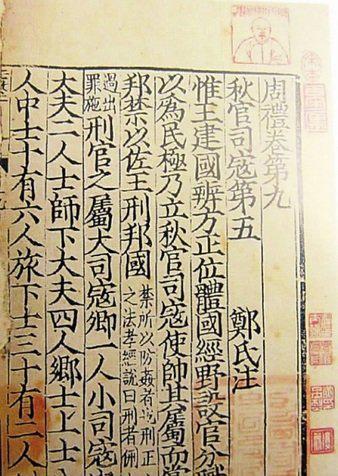 周禮卷第九
秋官司寇第五 鄭氏注
惟王建國辨方正位體國經野設官分職
以為民極乃立秋官司寇使帥其屬而掌
邦禁以佐王刑邦國
禁所以防姦者也刑正
之法孝經說曰刑者侀
過出
罪施
刑官之屬大司寇卿一人小司寇
大夫二人士師下大夫四人鄉士上士
人中士十有六人旅下士三十有二人